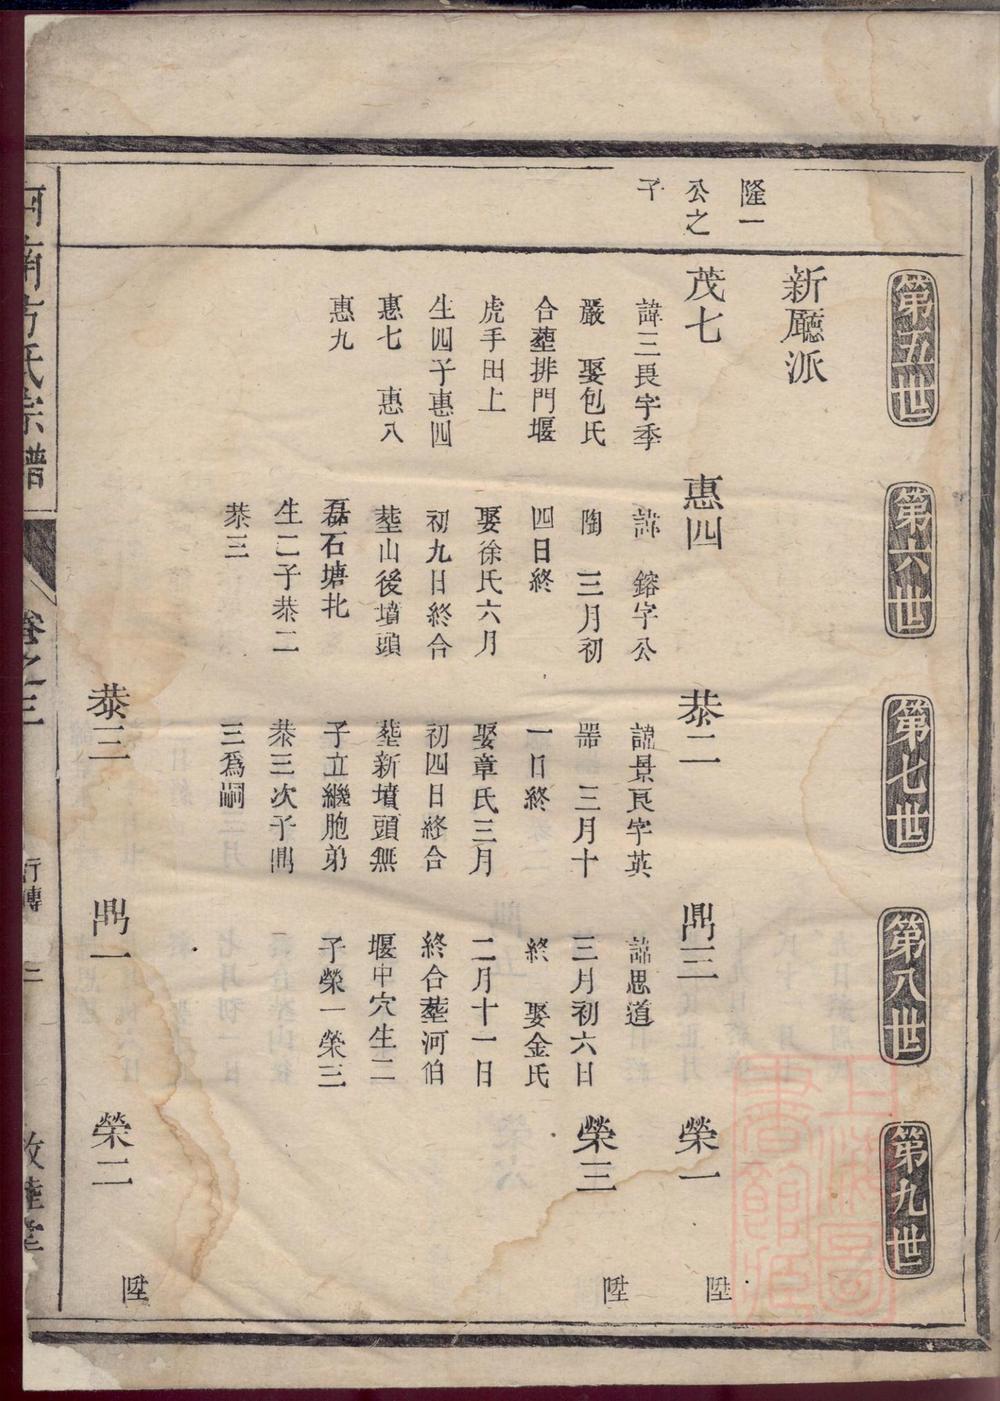 第五世
第六世
第七世
第八世
第九世
新廳派
隆一
公之
子
茂七
諱三畏字季
嚴　娶包氏
合塟排門堰
虎手田上
生四子惠四
惠七　惠八
惠九
惠四
諱　鎔字公
陶　三月初
四日終
娶徐氏六月
初九日終合
塟山後墳頭
磊石塘北
生二子恭二
恭三
恭二
諱景良字英
器　三月十
一日終
娶章氏三月
初四日終合
塟新墳頭無
子立繼胞弟
恭三次子鼎
三為嗣
鼎三
諱思道
三月初六日
終　娶金氏
二月十一日
終合塟河伯
堰中穴生二
子榮一榮三
榮一
陞
榮三
陞
恭三
鼎一
榮二
陞
河南方氏宗譜
卷之三
行傳
二
敦睦堂
上海圖
書館藏